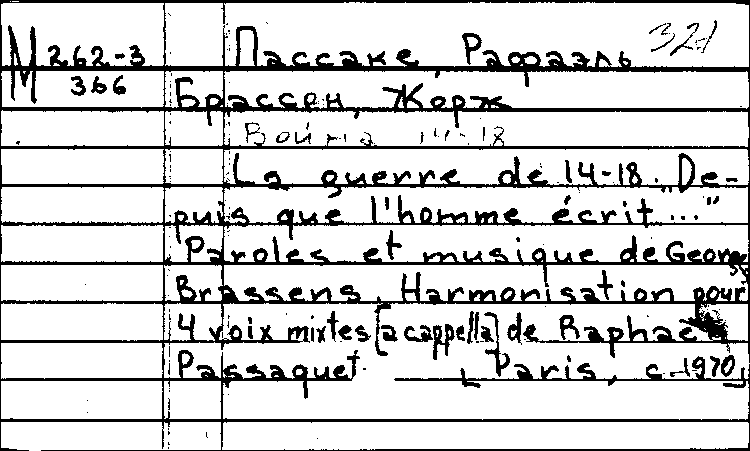 М 262-3 Пассаке, Рафаэль 32д
366
Брассен, Жорж
Война 14-18
La guerre de 14-18. "De-
puis que l'homme écrit..."
Paroles et musique de Georges
Brassens. Harmonisation pour
4 voix mixtes [a cappella] de Raphaël
Passaquet. [Paris, c. 1970]